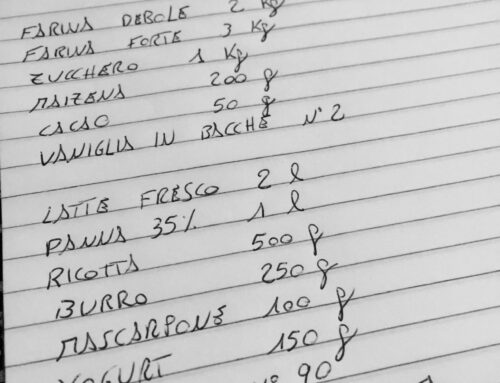 FARINA DEBOLE 2 Kg
FARINA FORTE 3 Kg
ZUCCHERO 1 Kg
MAIZENA 200 g
CACAO 50 g
VANIGLIA IN BACCHE N°2
LATTE FRESCO 2 l
PANNA 35% 1 l
RICOTTA 500 g
BURRO 250 g
MASCARPONE 100 g
YOGURT 150 g
N° 90